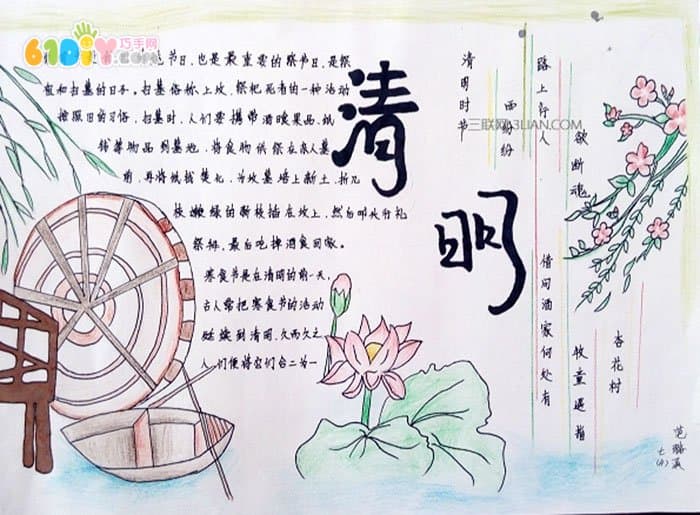 61DIY巧手网
节日,也是最重要的祭节日,是祭
祖和扫墓的日子。扫墓俗称上坟,祭祀死者的一种活动
按照旧的习俗,扫墓时,人们要携带酒食果品、纸
钱等物品到墓地,将食物供祭在亲人墓
前,再将纸钱焚化,为坟墓培上新土,折几
枝嫩绿的新枝插在坟上,然后叩头行礼
祭拜,最后吃掉酒食回家。
寒食节是在清明的前一天,
古人常把寒食节的活动
延续到清明,久而久之
人们便将它们合二为一
清明
清明时节
雨纷纷
路上行人
欲断魂
借问酒家何处有
牧童遥指
杏花村
三联网 3LIAN.COM
七